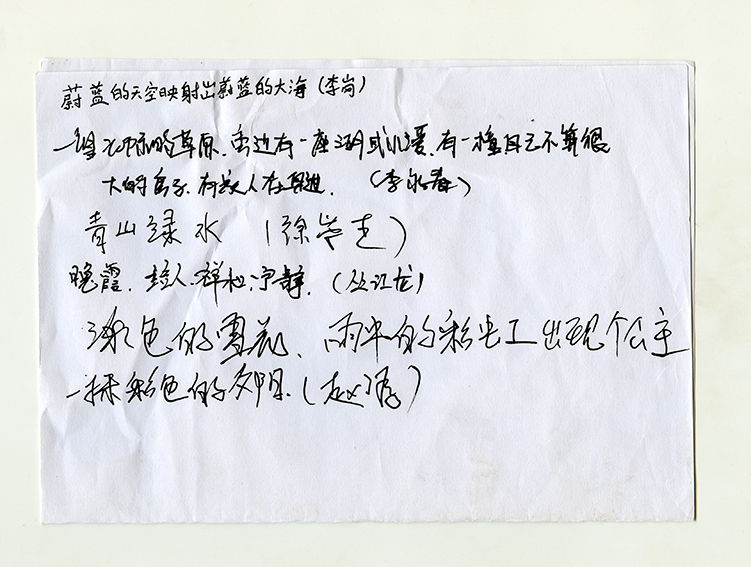 蔚蓝的天空映射出蔚蓝的大海(李尚)
一望无际的草原,旁边有一座湖或小溪,有一幢自己不算很
大的房子,有家人在身边. (李永春)
青山绿水 (徐学志)
晚霞,恋人,祥和,宁静.(丛江龙)
绿色的雪花、雨中的彩虹上出现个公主
一抹彩色的夕阳.(赵)